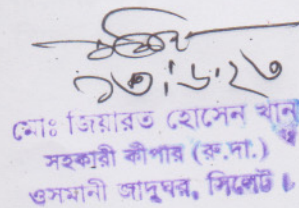 ১৩/৬/২৩
মোঃ জিয়ারত হোসেন খান
সহকারী কীপার (রু.দা.)
ওসমানী জাদুঘর, সিলেট।